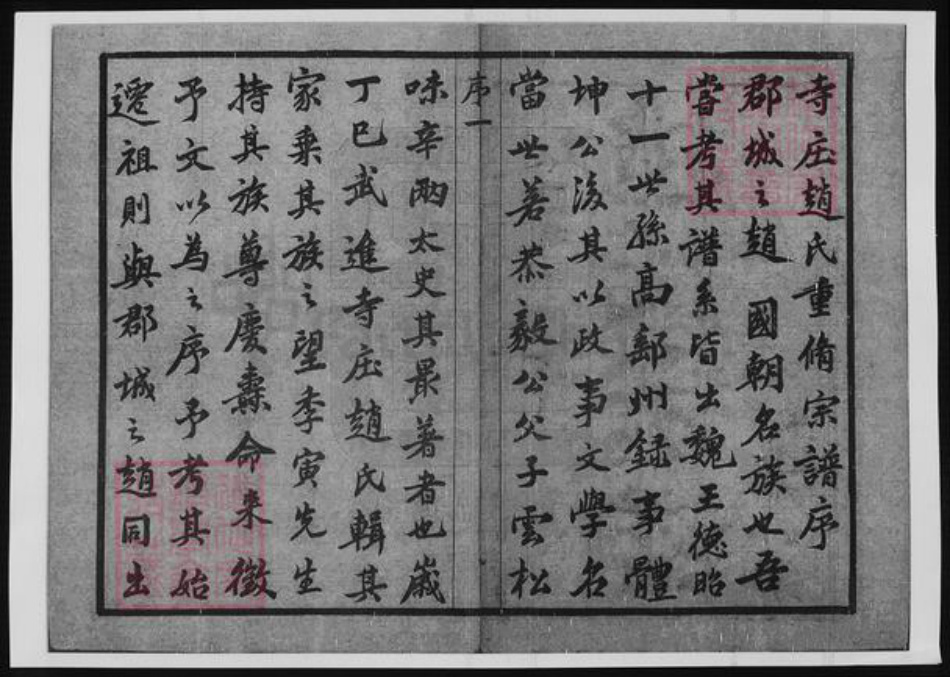 寺庄趙氏重脩宗譜序
郡城之趙 國朝名族也吾
嘗考其譜系皆出魏王德昭
十一世孫高郵州錄事體
坤公後其以政事文學名
當世若恭毅公父子雲松
序一
味辛兩太史其最著者也歲
丁巳武進寺庄趙氏輯其
家乘其族之望季寅先生
持其族尊慶燾命来徵
予文以為之序予考其始
遷祖則與郡城之趙同出